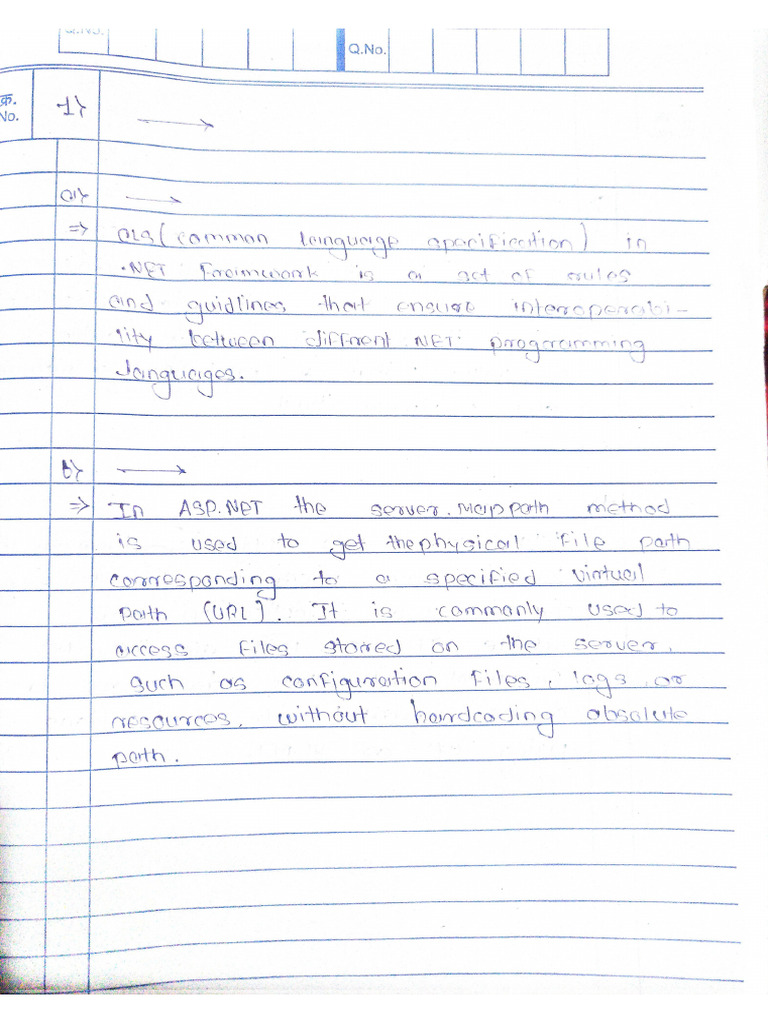 Q.No.
Q.No.
क्र.
No.
1}
a}
⇒ CLS (common language specification) in
.NET Framwork is a set of rules
and guidlines that ensure interoperabi-
lity between diffrent .NET programming
languages.
b}
⇒ In ASP.NET the server.Mappath method
is used to get the physical file path
corresponding to a specified virtual
path (URL). It is commonly used to
access files stored on the server,
such as configuration files, logs, or
resources, without hardcoding absolute
path.